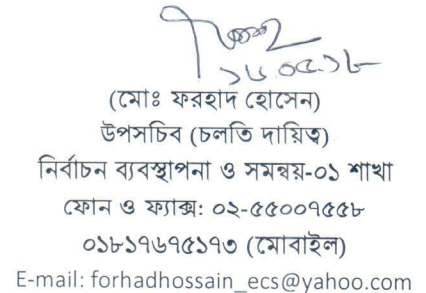 ১৬.০৫.১৮
(মোঃ ফরহাদ হোসেন)
উপসচিব (চলতি দায়িত্ব)
নির্বাচন ব্যবস্থাপনা ও সমন্বয়-০১ শাখা
ফোন ও ফ্যাক্স: ০২-৫৫০০৭৫৫৮
০১৮১৭৬৭৫১৭৩ (মোবাইল)
E-mail: forhadhossain_ecs@yahoo.com